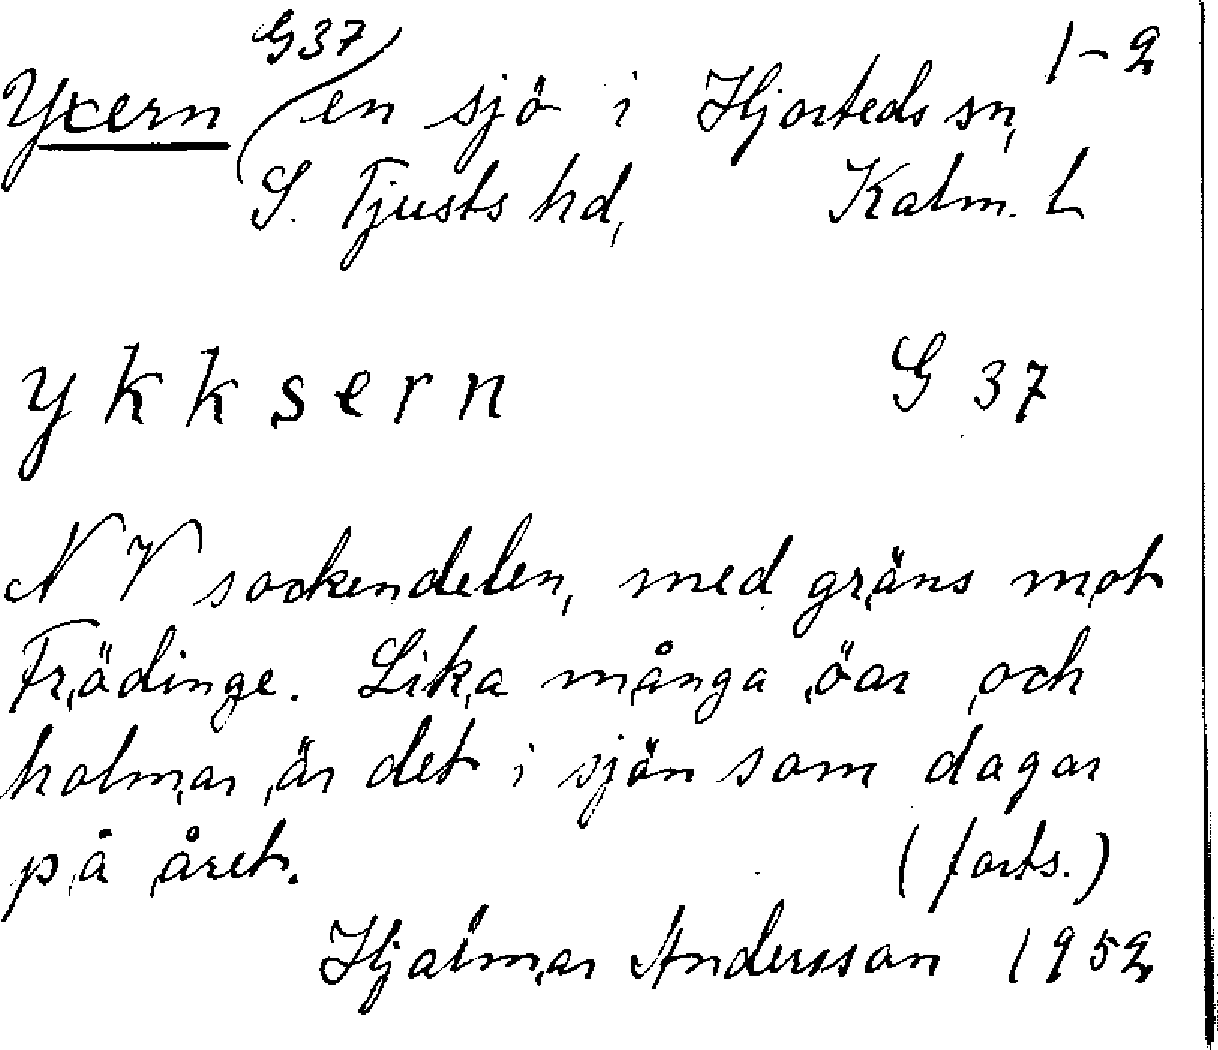 G37 1-2
Yxern en sjö i Hjorteds sn,
S. Tjusts hd, Kalm. L
ykksern G 37
NV sockendelen, med gräns mot
Frödinge. Lika många öar och
holmar är det i sjön som dagar
på året. (forts.)
Hjalmar Andersson 1952